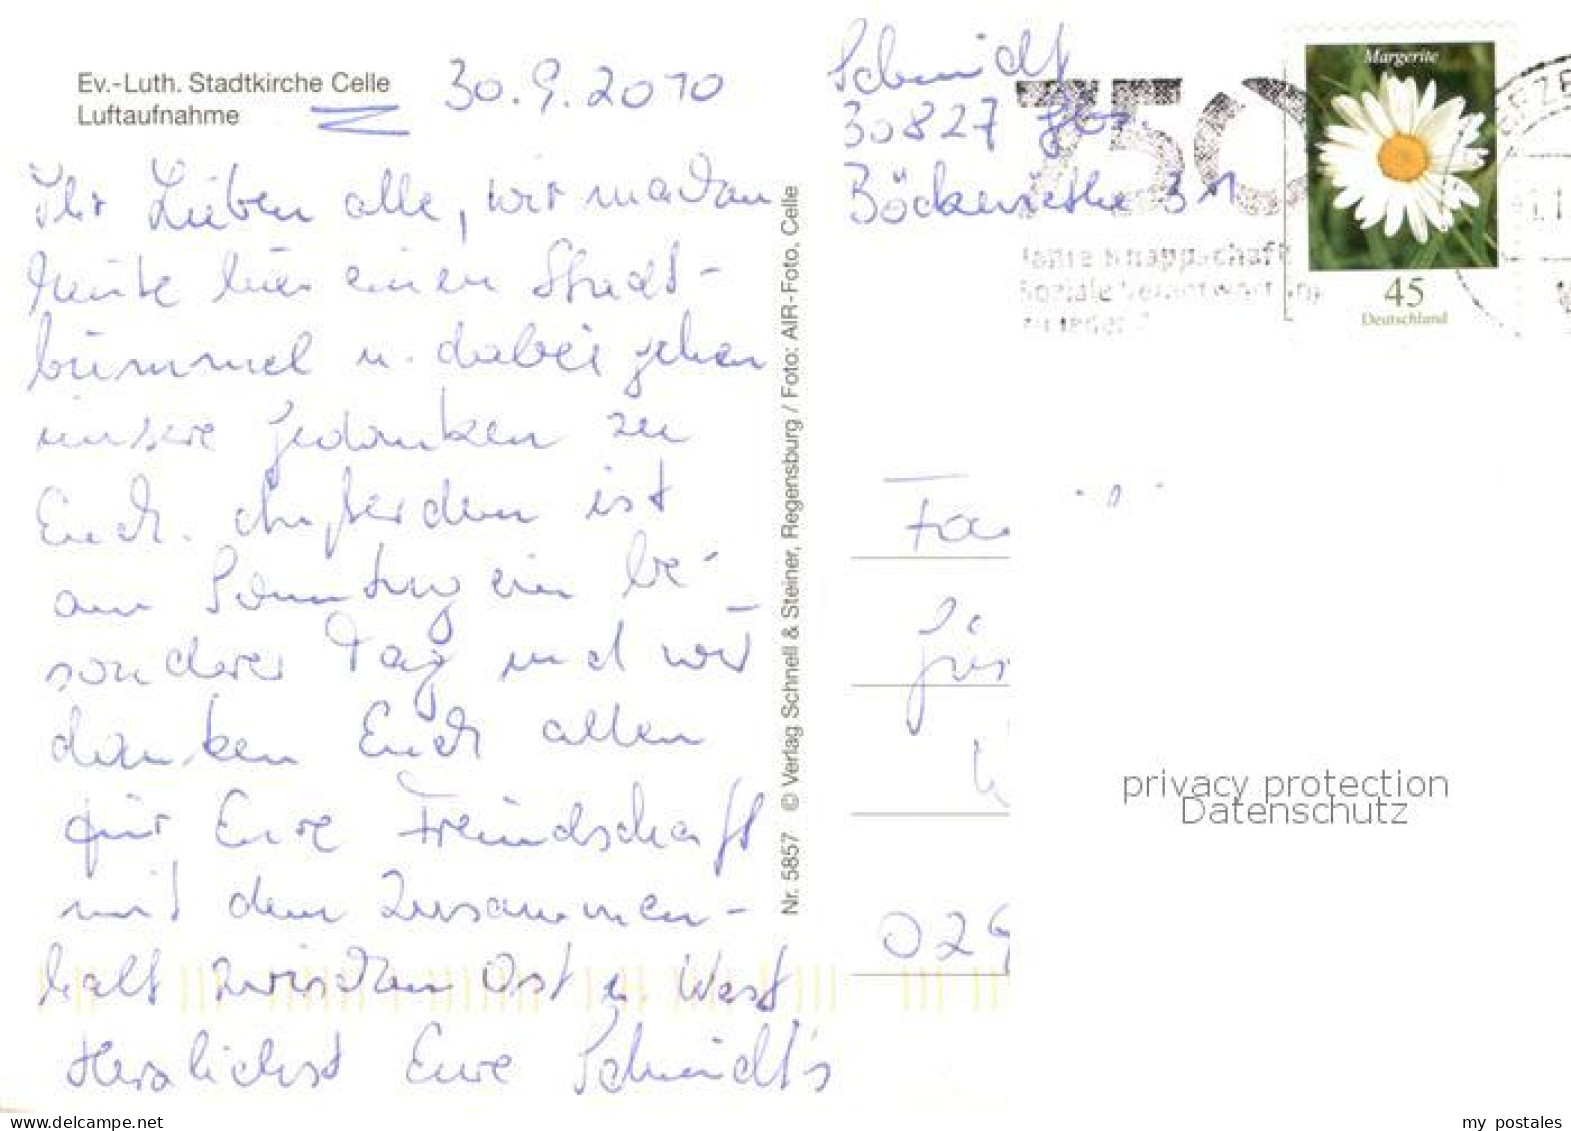 Ev.-Luth. Stadtkirche Celle
Luftaufnahme
30.9.2010
Ihr Lieben alle, wir machen
heute hier einen Stadt-
bummel u. dabei gehen
unsere Gedanken zu
Euch. Außerdem ist
am Sonntag ein be-
sonderer Tag und wir
danken Euch allen
für Eure Freundschaft
mit dem Zusammen-
halt zwischen Ost u. West
Herzlichst Eure Schmidt's
Nr. 5857 © Verlag Schnell & Steiner, Regensburg / Foto: AIR-Foto, Celle
Schmidt
30827
31
750
Jahre Knappschaft
Soziale Verantwortung
Margerite
45
Deutschland
Fa
029
privacy protection
Datenschutz
www.delcampe.net
my_postales